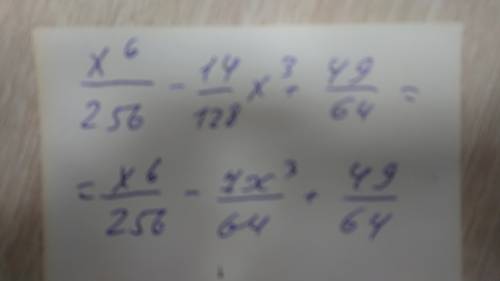 x⁶/256 - 14/128 x³ + 49/64 =
= x⁶/256 - 7x³/64 + 49/64